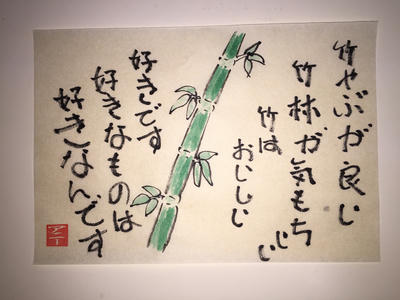 竹やぶが良い
竹林が気もち
いい
竹は
おいしい
好きです
好きなものは
好きなんです
アニー